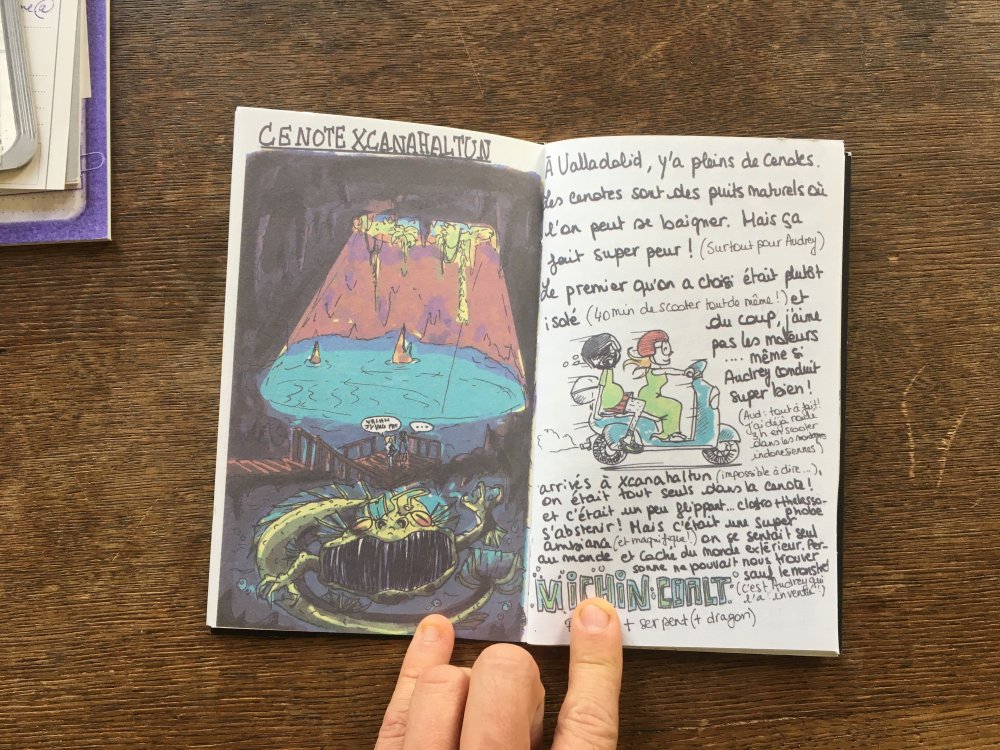 CENOTE XCANAHALTUN
...
À Valladolid, y'a pleins de Cenotes.
Les cenotes sont des puits naturels où
l'on peut se baigner. Mais ça
fait super peur ! (Surtout pour Audrey)
Le premier qu'on a choisi était plutôt
isolé (40 min de scooter tout de même !) et
du coup, j'aime
pas les moteurs
.... même si
Audrey conduit
super bien !
(Aud : tout à fait !!
J'ai déjà roulé
3h en scooter
dans les montagnes
indonésiennes)
arrivés à Xcanahaltun (impossible à dire ...),
on était tout seuls dans la cenote !
et c'était un peu flippant... clostro + thalasso-
phobe
s'abstenir ! Mais c'était une super
ambiance (et magnifique !) on se sentait seul
au monde et caché du monde extérieur. Per-
sonne ne pouvait nous trouver
sauf le monstre !
(c'est Audrey qui
l'a inventé !!)
MICHIN COALT
+ serpent (+ dragon)